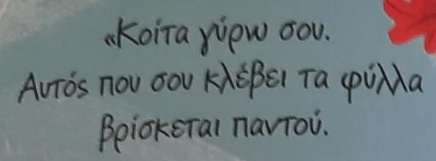 «Κοίτα γύρω σου.
Αυτός που σου κλέβει τα φύλλα
βρίσκεται παντού.